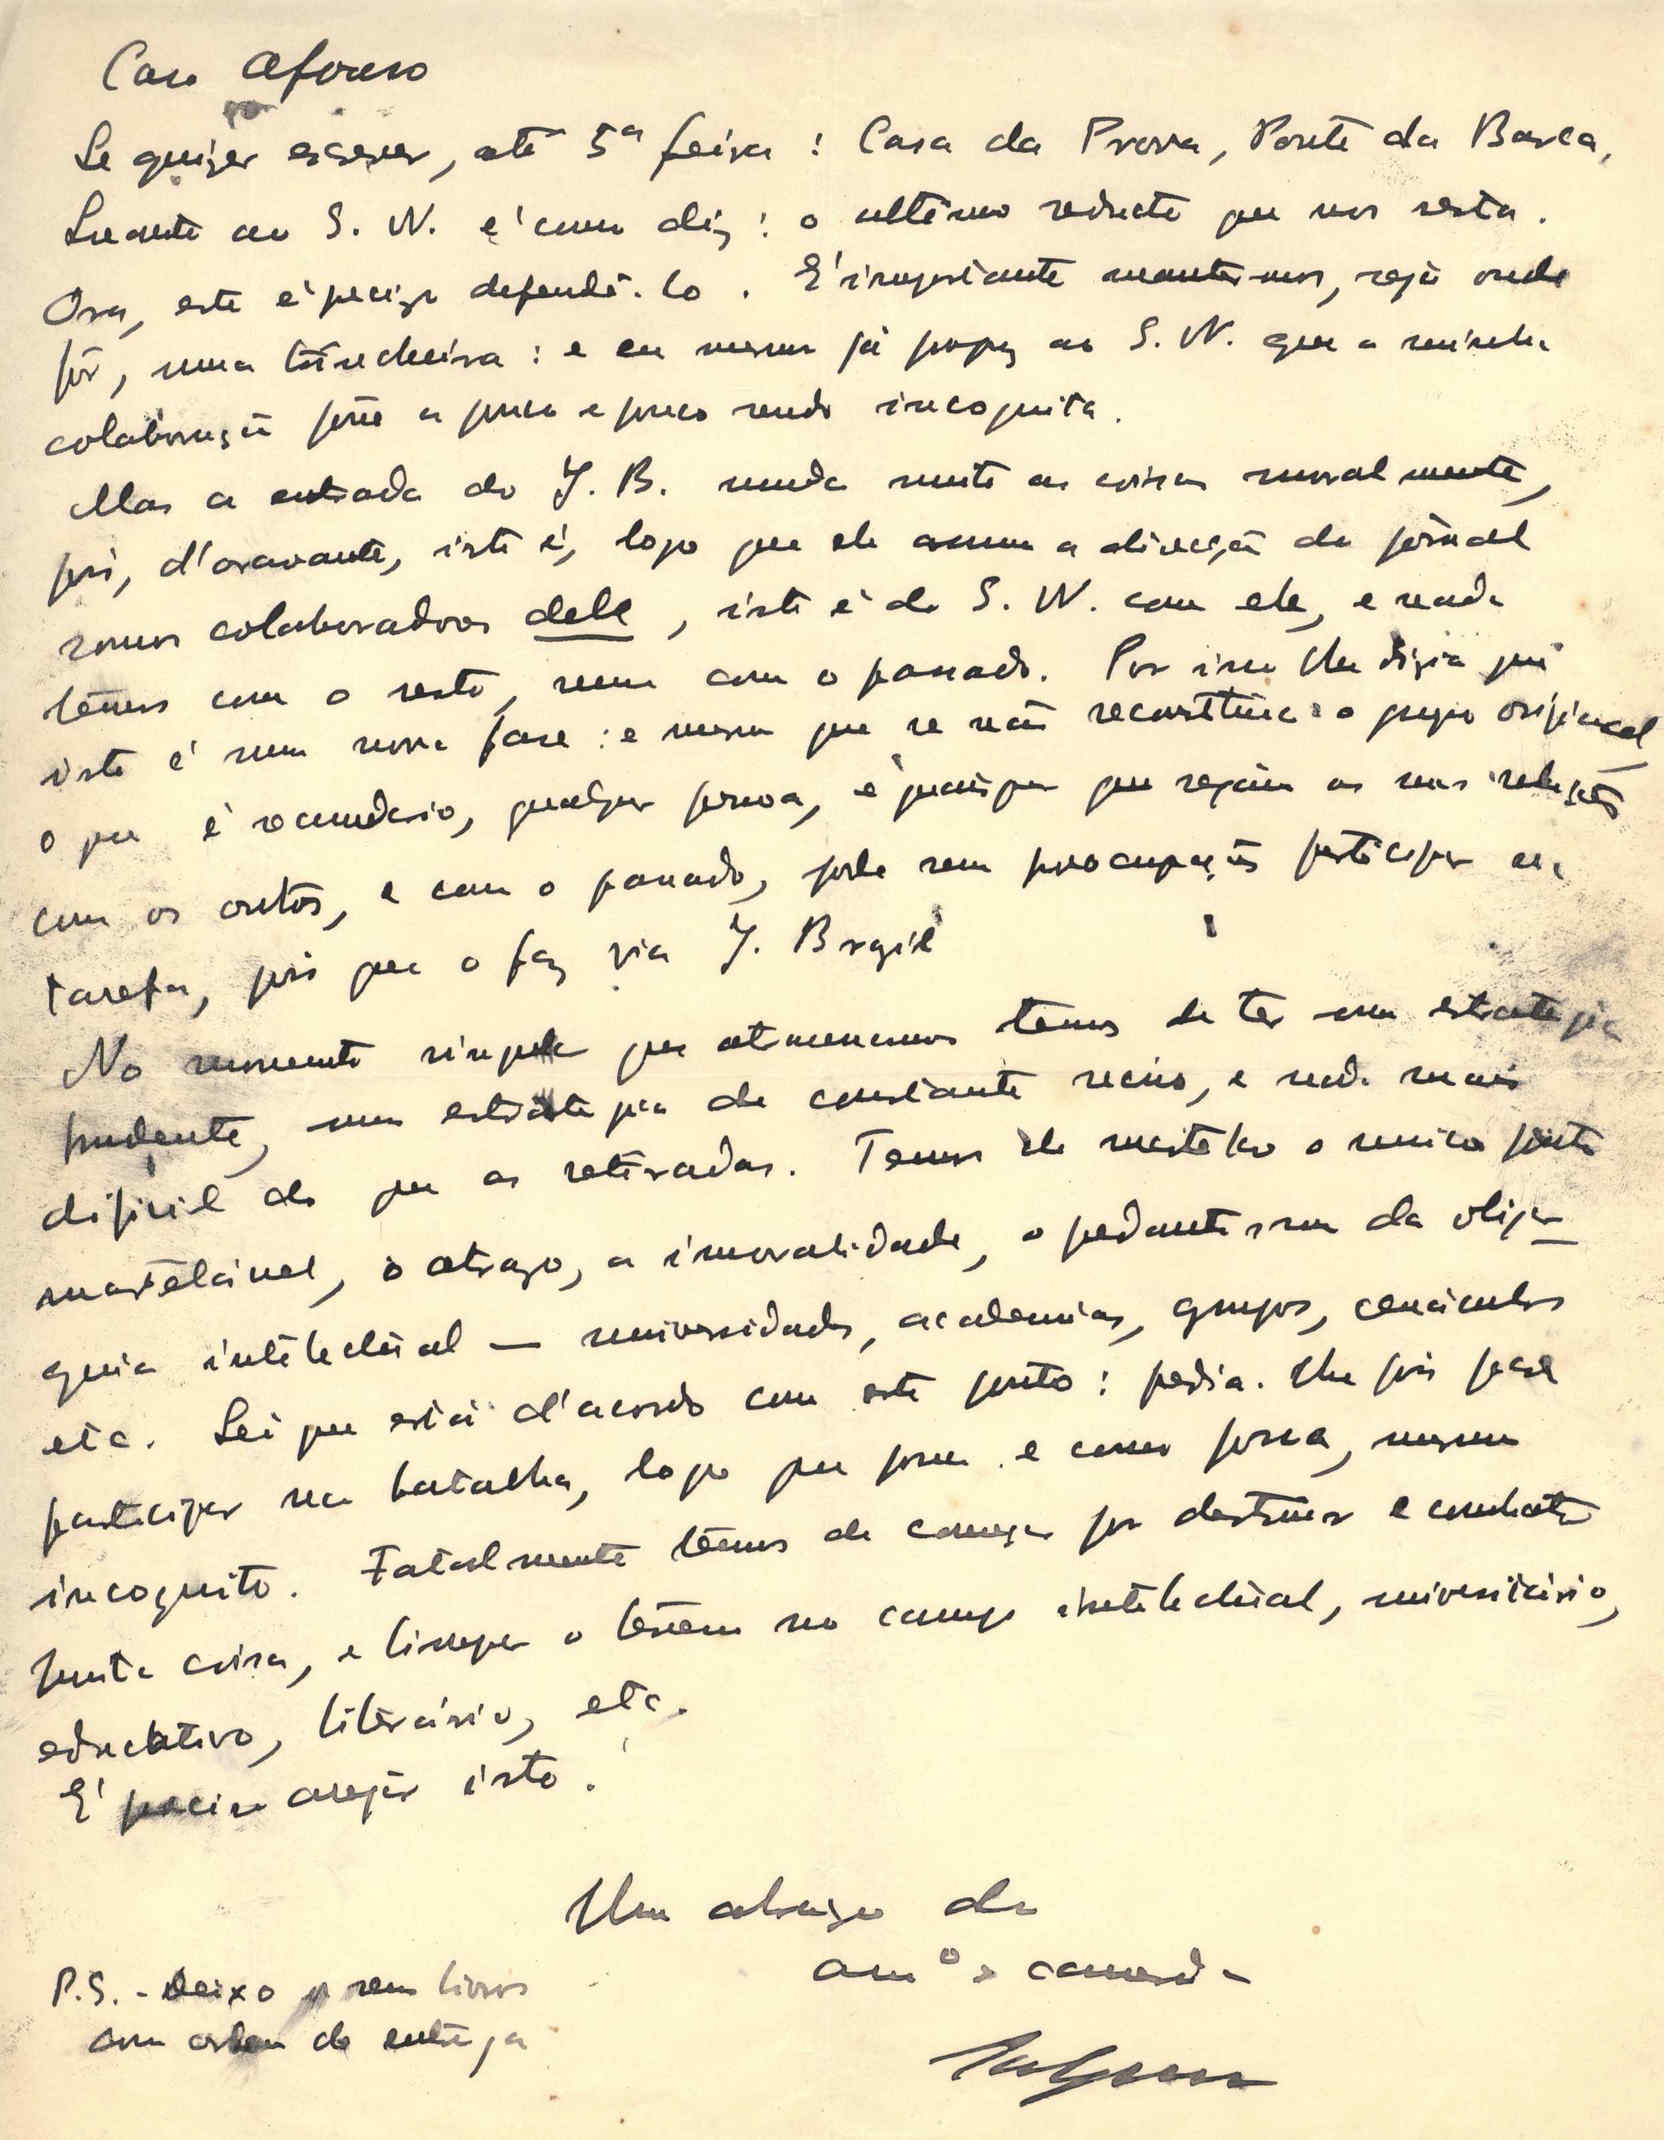 Caro Afonso
Se quizer escrever, até 5ª feira: Casa da Prova, Ponte da Barca,
Quanto ao S. N. é como diz: o ultimo reducto que nos resta.
Ora, este é precizo defendê-lo. É importante mantermos, seja onde
fôr, uma trincheira: e eu mesmo já propuz ao S. N. que a minha
colaboração fôsse a pouco e pouco sendo incognita.
Mas a entrada do J. B. muda muito as coisas moralmente,
pois, d'oravante, isto é, logo que ele assuma a direcção do jornal
somos colaboradores dele, isto é do S. N. com ele, e nada
temos com o resto, nem com o passado. Por isso lhe dizia que
isto é uma nova fase: e mesmo que se não reconstitúa o grupo original
o que é secundario, qualquer pessoa, e quaisquer que sejam as suas relações
com os outros, e com o passado, pode sem preocupações participar na
tarefa, pois que o faz via J. Brazil
No momento que atravessamos temos de ter uma estrategia
prudente, uma estrategia de constante recuo, e nada mais
dificil do que as retiradas. Temos de martelar o unico ponto
martelavel, o atrazo, a imoralidade, o pedantismo da oligar-
quia intelectual — universidades, academias, grupos, cenaculos
etc. Sei que está d'acordo com este ponto: pedia-lhe pois para
participar na batalha, logo que possa e como possa, mesmo
incognito. Fatalmente temos de começar por destruir e combater
muita coisa, e limpar o terreno no campo intelectual, universitário,
educativo, literário, etc.
É preciso arejar isto.
Um abraço do
amº e camarada
P.S. - Deixo os seus livros
com ordem de entrega